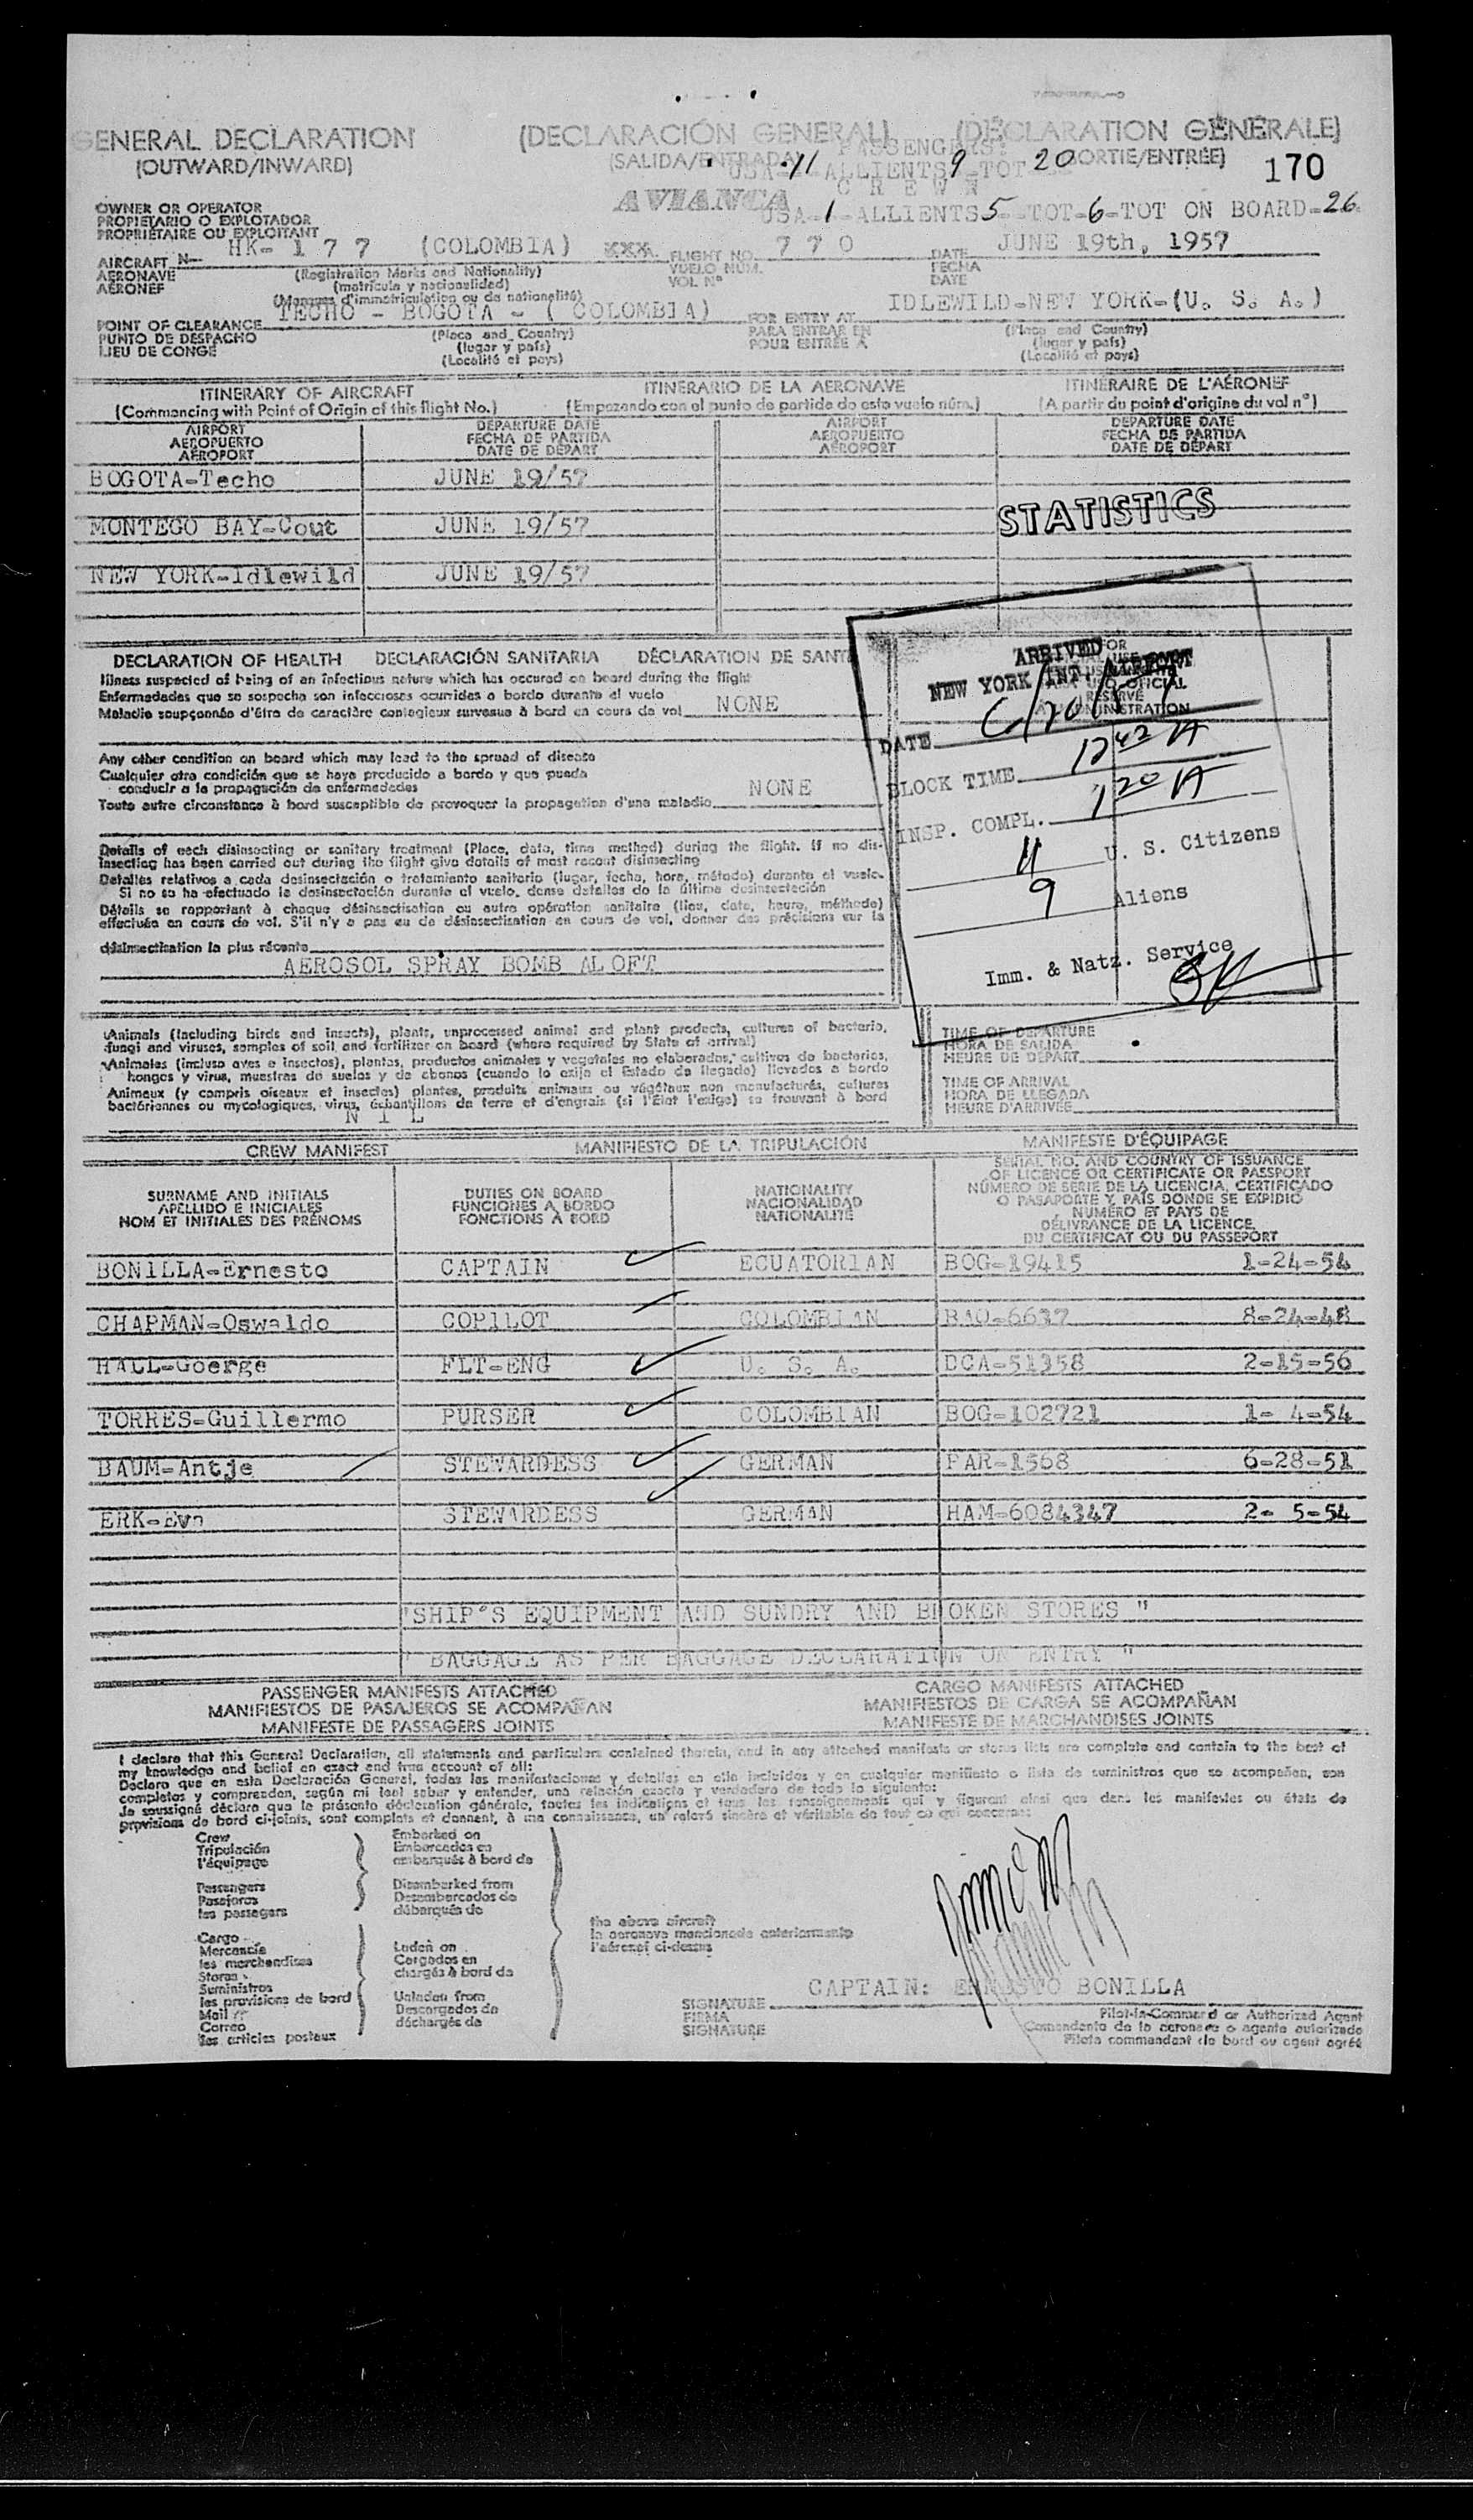 GENERAL DECLARATION (DECLARACIÓN GENERAL) (DÉCLARATION GÉNÉRALE)
(OUTWARD/INWARD) (SALIDA/ENTRADA) (SORTIE/ENTRÉE) 170
PASSENGERS:
USA-11-ALLIENTS 9-TOT 20
CREW
AVIANCA USA-1-ALLIENTS 5-TOT-6-TOT ON BOARD-26
OWNER OR OPERATOR
PROPIETARIO O EXPLOTADOR
PROPRIÉTAIRE OU EXPLOITANT
AIRCRAFT N- HK-177 (COLOMBIA) XXX FLIGHT NO. 770 DATE JUNE 19th, 1957
AERONAVE (Registration Marks and Nationality) VUELO NÚM. FECHA
AÉRONEF (matrícula y nacionalidad) VOL Nº DATE
(Marques d'immatriculation ou de nationalité)
POINT OF CLEARANCE TECHO - BOGOTA - ( COLOMBIA) FOR ENTRY AT IDLEWILD-NEW YORK-(U. S. A.)
PUNTO DE DESPACHO (Place and Country) PARA ENTRAR EN (Place and Country)
LIEU DE CONGÉ (lugar y país) POUR ENTRÉE A (lugar y país)
(Localité et pays) (Localité et pays)
ITINERARY OF AIRCRAFT ITINERARIO DE LA AERONAVE ITINÉRAIRE DE L'AÉRONEF
(Commencing with Point of Origin of this flight No.) (Empezando con el punto de partida de este vuelo núm.) (A partir du point d'origine du vol nº)
AIRPORT DEPARTURE DATE AIRPORT DEPARTURE DATE
AEROPUERTO FECHA DE PARTIDA AEROPUERTO FECHA DE PARTIDA
AÉROPORT DATE DE DÉPART AÉROPORT DATE DE DÉPART
BOGOTA-Techo JUNE 19/57
STATISTICS
MONTEGO BAY-Cout JUNE 19/57
NEW YORK-Idlewild JUNE 19/57
DECLARATION OF HEALTH DECLARACIÓN SANITARIA DÉCLARATION DE SANTÉ
Illness suspected of being of an infectious nature which has occured on board during the flight
Enfermedades que se sospecha son infecciosas ocurridas a bordo durante el vuelo
Maladie soupçonnée d'être de caractère contagieux survenue à bord en cours de vol NONE
Any other condition on board which may lead to the spread of disease
Cualquier otra condición que se haya producido a bordo y que pueda
conducir a la propagación de enfermedades
Toute autre circonstance à bord susceptible de provoquer la propagation d'une maladie NONE
Details of each disinsecting or sanitary treatment (Place, date, time method) during the flight. If no dis-
insecting has been carried out during the flight give details of most recent disinsecting
Detalles relativos a cada desinsectación o tratamiento sanitario (lugar, fecha, hora, método) durante el vuelo.
Si no se ha efectuado la desinsectación durante el vuelo, dense detalles de la última desinsectación
Détails se rapportant à chaque désinsectisation ou autre opération sanitaire (lieu, date, heure, méthode)
effectuée en cours de vol. S'il n'y a pas eu de désinsectisation en cours de vol, donner des précisions sur la
désinsectisation la plus récente
AEROSOL SPRAY BOMB ALOFT
ARRIVED
NEW YORK INT. AIRPORT
DATE 6/20/57
BLOCK TIME 12 42 A
INSP. COMPL. 1 20 A
11 U. S. Citizens
9 Aliens
Imm. & Natz. Service
Animals (including birds and insects), plants, unprocessed animal and plant products, cultures of bacteria,
fungi and viruses, samples of soil and fertilizer on board (where required by State of arrival)
Animales (incluso aves e insectos), plantas, productos animales y vegetales no elaborados, cultivos de bacterias,
hongos y virus, muestras de suelos y de abonos (cuando lo exija el Estado de llegada) llevados a bordo
Animaux (y compris oiseaux et insectes) plantes, produits animaux ou végétaux non manufacturés, cultures
bactériennes ou mycologiques, virus, échantillons de terre et d'engrais (si l'État l'exige) se trouvant à bord
N I L
TIME OF DEPARTURE
HORA DE SALIDA
HEURE DE DÉPART
TIME OF ARRIVAL
HORA DE LLEGADA
HEURE D'ARRIVÉE
CREW MANIFEST MANIFIESTO DE LA TRIPULACIÓN MANIFESTE D'ÉQUIPAGE
SURNAME AND INITIALS
APELLIDO E INICIALES
NOM ET INITIALES DES PRÉNOMS
DUTIES ON BOARD
FUNCIONES A BORDO
FONCTIONS À BORD
NATIONALITY
NACIONALIDAD
NATIONALITÉ
SERIAL NO. AND COUNTRY OF ISSUANCE
OF LICENCE OR CERTIFICATE OR PASSPORT
NÚMERO DE SERIE DE LA LICENCIA, CERTIFICADO
O PASAPORTE Y PAÍS DONDE SE EXPIDIÓ
NUMÉRO ET PAYS DE
DÉLIVRANCE DE LA LICENCE,
DU CERTIFICAT OU DU PASSEPORT
BONILLA-Ernesto CAPTAIN ECUATORIAN BOG-19415 1-24-54
CHAPMAN-Oswaldo COPILOT COLOMBIAN BAQ-6637 8-24-48
HALL-Goerge FLT-ENG U. S. A. DCA-51358 2-15-56
TORRES-Guillermo PURSER COLOMBIAN BOG-102721 1- 4-54
BAUM-Antje STEWARDESS GERMAN PAR-1568 6-28-51
ERK-Eva STEWARDESS GERMAN HAM-6084347 2- 5-54
"SHIP'S EQUIPMENT AND SUNDRY AND BROKEN STORES "
" BAGGAGE AS PER BAGGAGE DECLARATION ON ENTRY "
PASSENGER MANIFESTS ATTACHED CARGO MANIFESTS ATTACHED
MANIFIESTOS DE PASAJEROS SE ACOMPAÑAN MANIFIESTOS DE CARGA SE ACOMPAÑAN
MANIFESTE DE PASSAGERS JOINTS MANIFESTE DE MARCHANDISES JOINTS
I declare that this General Declaration, all statements and particulars contained therein, and in any attached manifests or stores lists are complete and contain to the best of
my knowledge and belief an exact and true account of all:
Declaro que en esta Declaración General, todas las manifestaciones y detalles en ella incluidos y en cualquier manifiesto o lista de suministros que se acompañen, son
completos y comprenden, según mi leal saber y entender, una relación exacta y verdadera de todo lo siguiente:
Je soussigné déclare que la présente déclaration générale, toutes les indications et tous les renseignements qui y figurent ainsi que dans les manifestes ou états de
provisions de bord ci-joints, sont complets et donnent, à ma connaissance, un relevé sincère et véritable de tout ce qui concerne:
Crew
Tripulación
l'équipage
Passengers
Pasajeros
les passagers
Cargo
Mercancía
les marchandises
Stores
Suministros
les provisions de bord
Mail
Correo
les articles postaux
Embarked on
Embarcados en
embarqués à bord de
Disembarked from
Desembarcados de
débarqués de
Laden on
Cargados en
chargés à bord de
Unladen from
Descargados de
déchargés de
the above aircraft
la aeronave mencionada anteriormente
l'aéronef ci-dessus
CAPTAIN: ERNESTO BONILLA
SIGNATURE
FIRMA
SIGNATURE
Pilot-in-Command or Authorized Agent
Comandante de la aeronave o agente autorizado
Pilote commandant de bord ou agent agréé